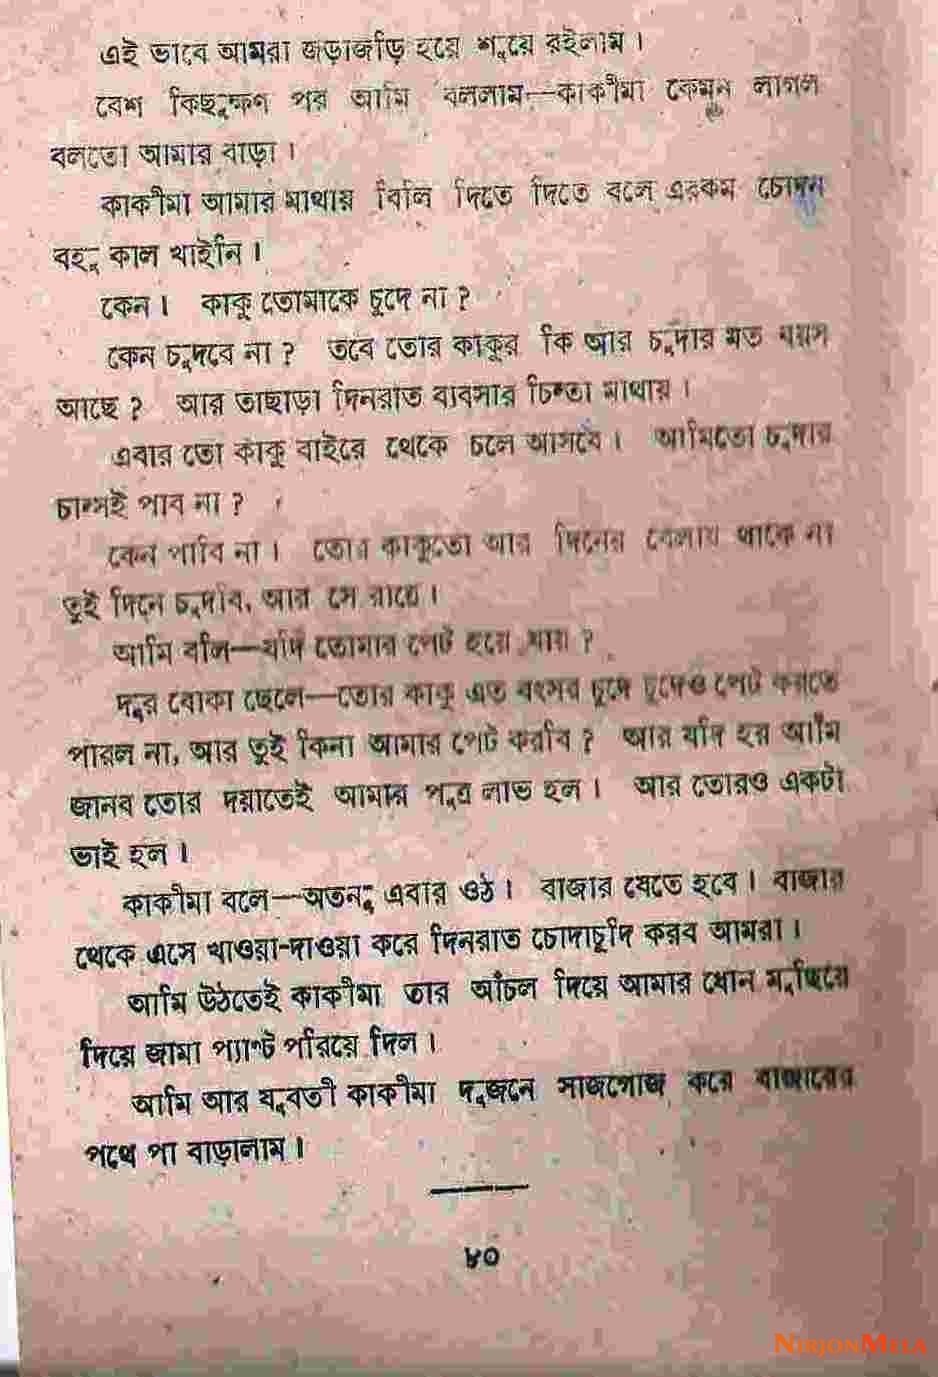 এই ভাবে আমরা জড়াজড়ি হয়ে শুয়ে রইলাম।
বেশ কিছুক্ষণ পর আমি বললাম—কাকীমা কেমন লাগল
বলতো আমার বাড়া।
কাকীমা আমার মাথায় বিলি দিতে দিতে বলে এরকম চোদন
বহু কাল খাইনি।
কেন। কাকু তোমাকে চুদে না?
কেন চুদবে না? তবে তোর কাকুর কি আর চুদার মত বয়স
আছে? আর তাছাড়া দিনরাত ব্যবসার চিন্তা মাথায়।
এবার তো কাকু বাইরে থেকে চলে আসবে। আমিতো চুদার
চান্সই পাব না?
কেন পাবি না। তোর কাকুতো আর দিনের বেলায় থাকে না
তুই দিনে চুদবি, আর সে রাতে।
আমি বলি—যদি তোমার পেট হয়ে যায়?
দুর বোকা ছেলে—তোর কাকু এত বৎসর চুদে চুদেও পেট করতে
পারল না, আর তুই কিনা আমার পেট করবি? আর যদি হয় আমি
জানব তোর দয়াতেই আমার পুত্র লাভ হল। আর তোরও একটা
ভাই হল।
কাকীমা বলে—অতনু এবার ওঠ। বাজার যেতে হবে। বাজার
থেকে এসে খাওয়া-দাওয়া করে দিনরাত চোদাচুদি করব আমরা।
আমি উঠতেই কাকীমা তার আঁচল দিয়ে আমার ধোন মুছিয়ে
দিয়ে জামা প্যান্ট পরিয়ে দিল।
আমি আর যুবতী কাকীমা দুজনে সাজগোজ করে বাজারের
পথে পা বাড়ালাম।
৮০
NIRJONMELA